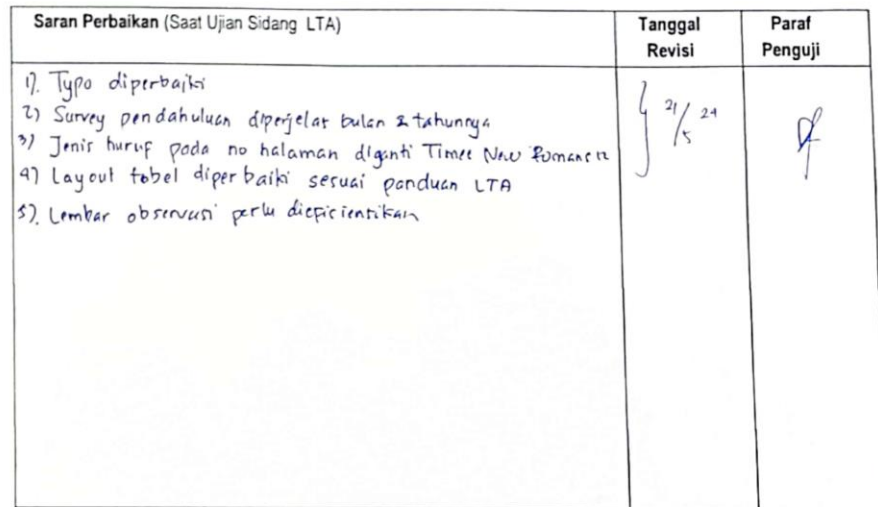 Saran Perbaikan (Saat Ujian Sidang LTA)
Tanggal Revisi
Paraf Penguji
1). Typo diperbaiki
2) Survey pendahuluan diperjelas bulan & tahunnya
3) Jenis huruf pada no halaman diganti Times New Romans 12
4) Layout tabel diperbaiki sesuai panduan LTA
5). Lembar observasi perlu dieficientikan
21/5 24